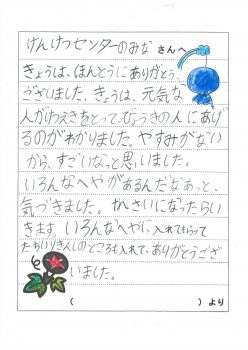 けんけつセンターのみなさんへ
きょうは、ほんとうにありがとう
ございました。きょうは、元気な
人がわえきをとって、びょうきの人にあげ
るのがわかりました。やすみがない
から、すごいなっと思いました。
いろんなへやがあるんだなあっと、
気づきました。16さいになったらい
きます。いろんなへやに入れてもらって
たちいりきんしのところも入れて、ありがとうござ
いました。
( )より